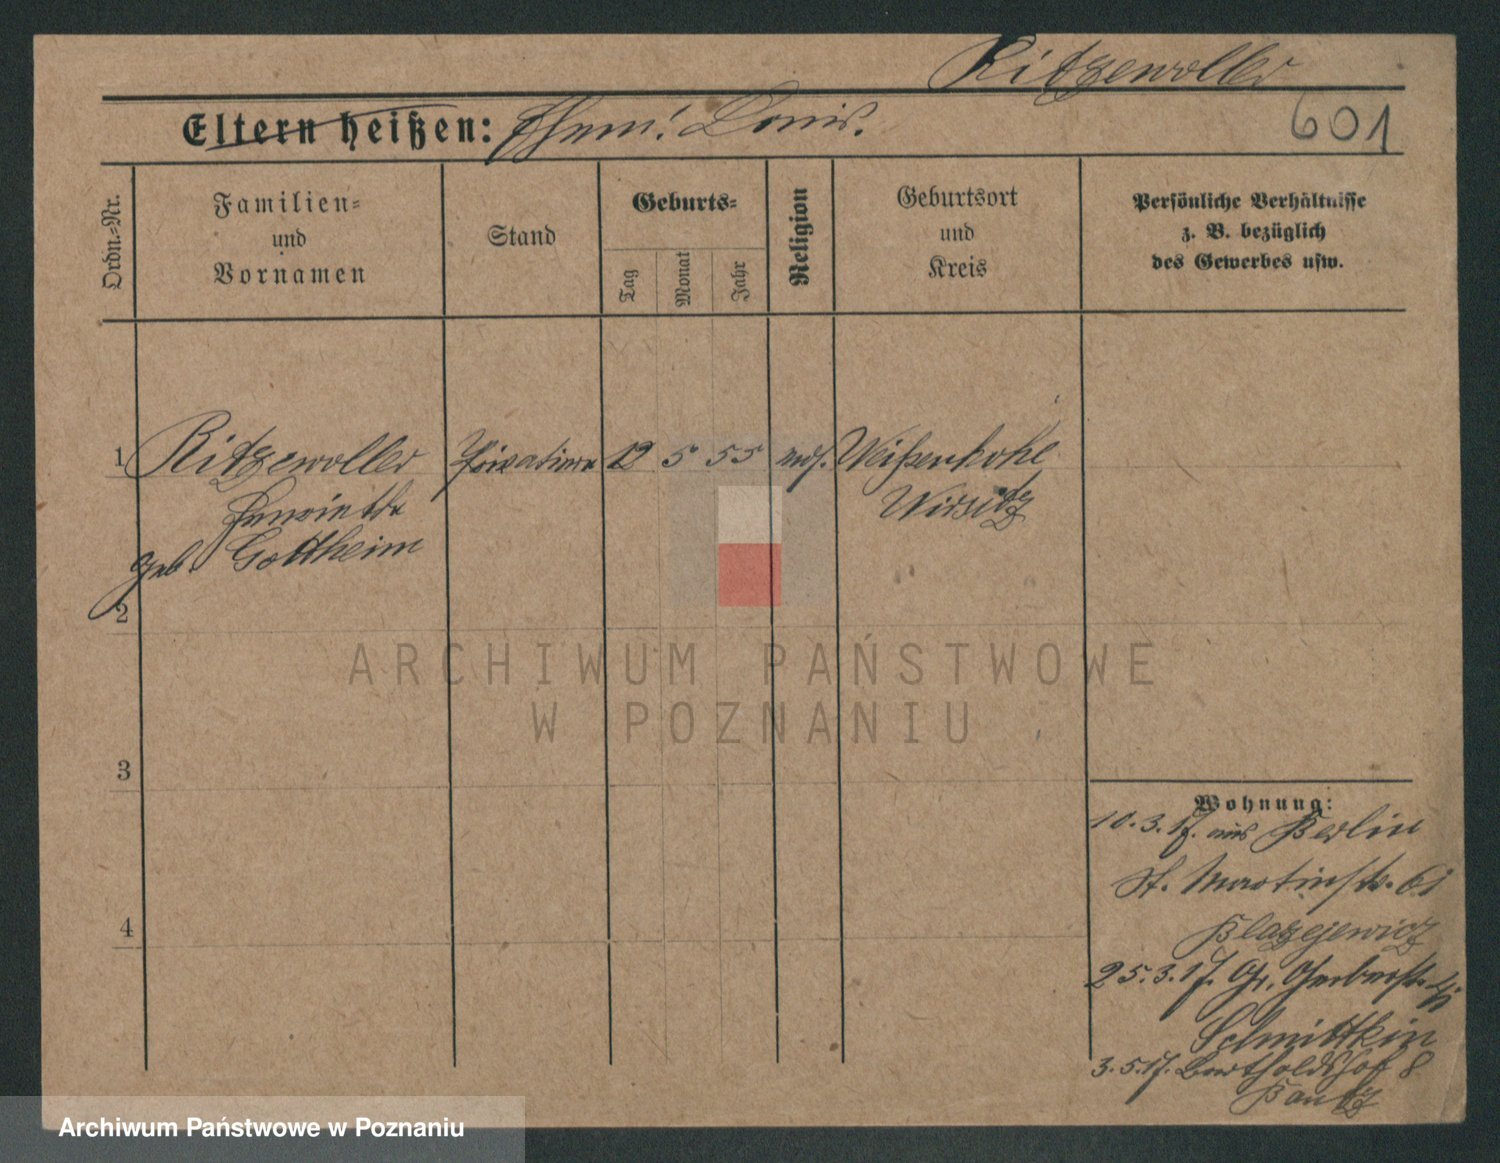 Ritzewoller
Eltern heißen: Ehem: Louis.
601
Ordn.-Nr.
Familien-
und
Vornamen
Stand
Geburts-
Tag
Monat
Jahr
Religion
Geburtsort
und
Kreis
Persönliche Verhältnisse
z. B. bezüglich
des Gewerbes usw.
1 Ritzewoller Privatiere 12 5 55 mos. Weißenhöhe
Henriette Wirsitz
geb. Gottheim
2
3
4
Wohnung:
10.3.17. aus Berlin
St. Martinstr. 61
Blazejewicz
25.3.17. Gr. Gerberstr.
Schmittkin
3.5.17. Bertholdshof 8
Bautz
ARCHIWUM PAŃSTWOWE
W POZNANIU
Archiwum Państwowe w Poznaniu